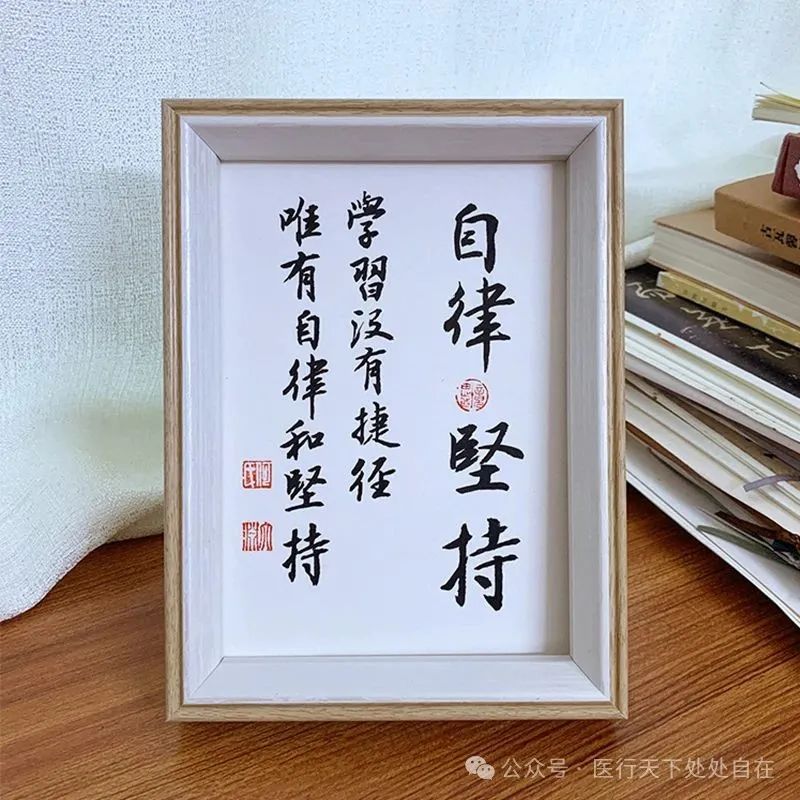 自律 堅持
學習没有捷徑
唯有自律和堅持
公众号·医行天下处处自在